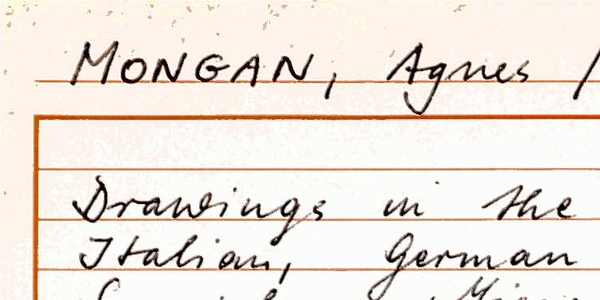 MONGAN, Agnes /
Drawings in the
Italian, German